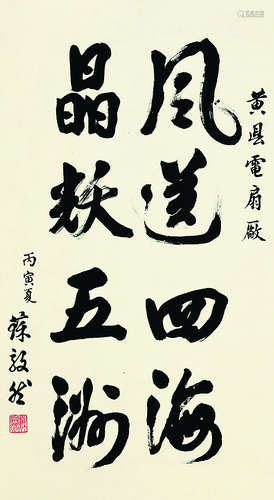 黄县電扇厰
风送四海
晶五洲
丙寅夏 蘇毅然